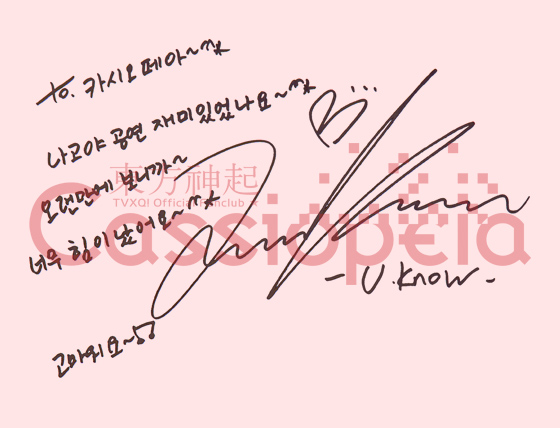 to. 카시오페아~^^*
나고야 공연 재미있었나요~^^*
오랜만에 보니까~
너무 힘이 났어요~^^*
고마워요~♪♪
- U.know -
東方神起
TVXQ! Official Fanclub ☆
Cassiopeia